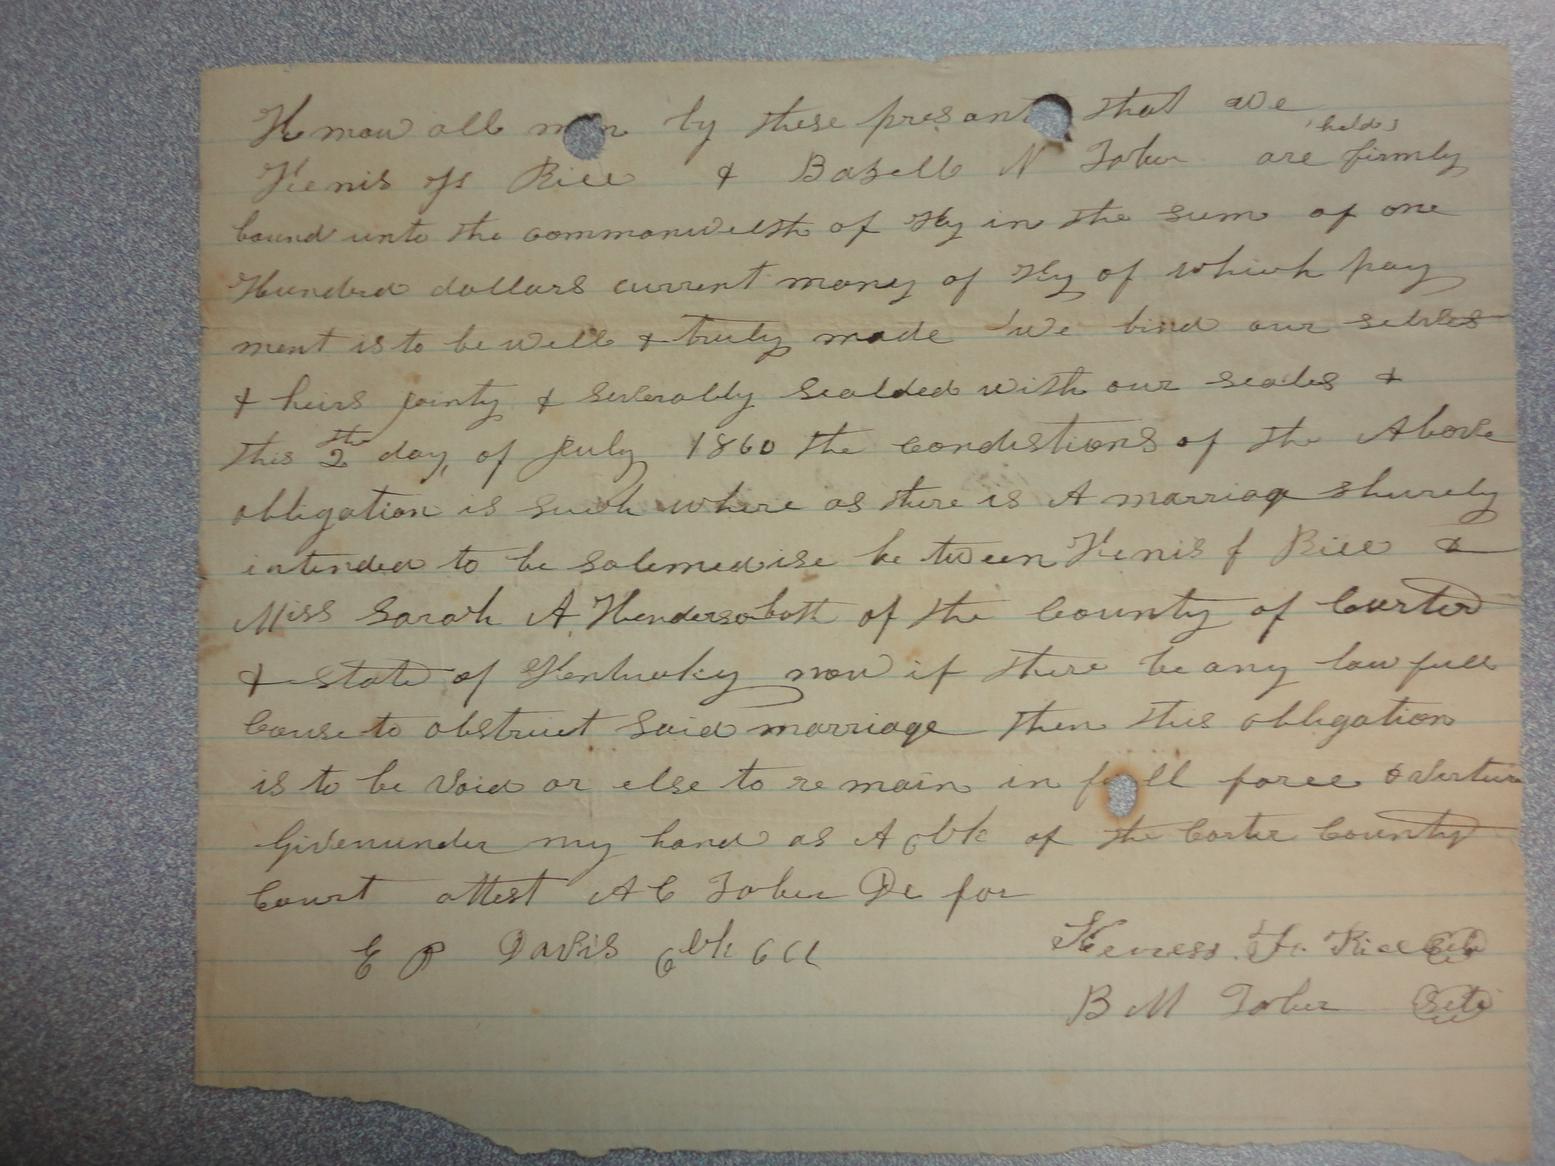 Know all men by these presants that we
helds
Kenis Fs Rice & Basell N Tabor are firmly
bound unto the commonwelth of Ky in the sum of one
Hundred dollars current mony of Ky of which pay
ment is to be well & truly made we bind our selves
& heirs jointy & severably sealded with our seales &
this 2th day of July 1860 the Condistions of the Above
obligation is such where as there is A marriag shurely
intended to be solemedise be tween Kenis f Rice &
Miss Sarah A. Hendersobott of the County of Carter
& State of Kentucky now if there be any law full
Cause to obstruct said marriage then this obligation
is to be void or else to re main in full force & vertue
Given under my hand as A Clk of the Carter County
Court attest A C Tabor DC for
E P Davis Clk CCC
Keness. F. Rice
B M Tabor